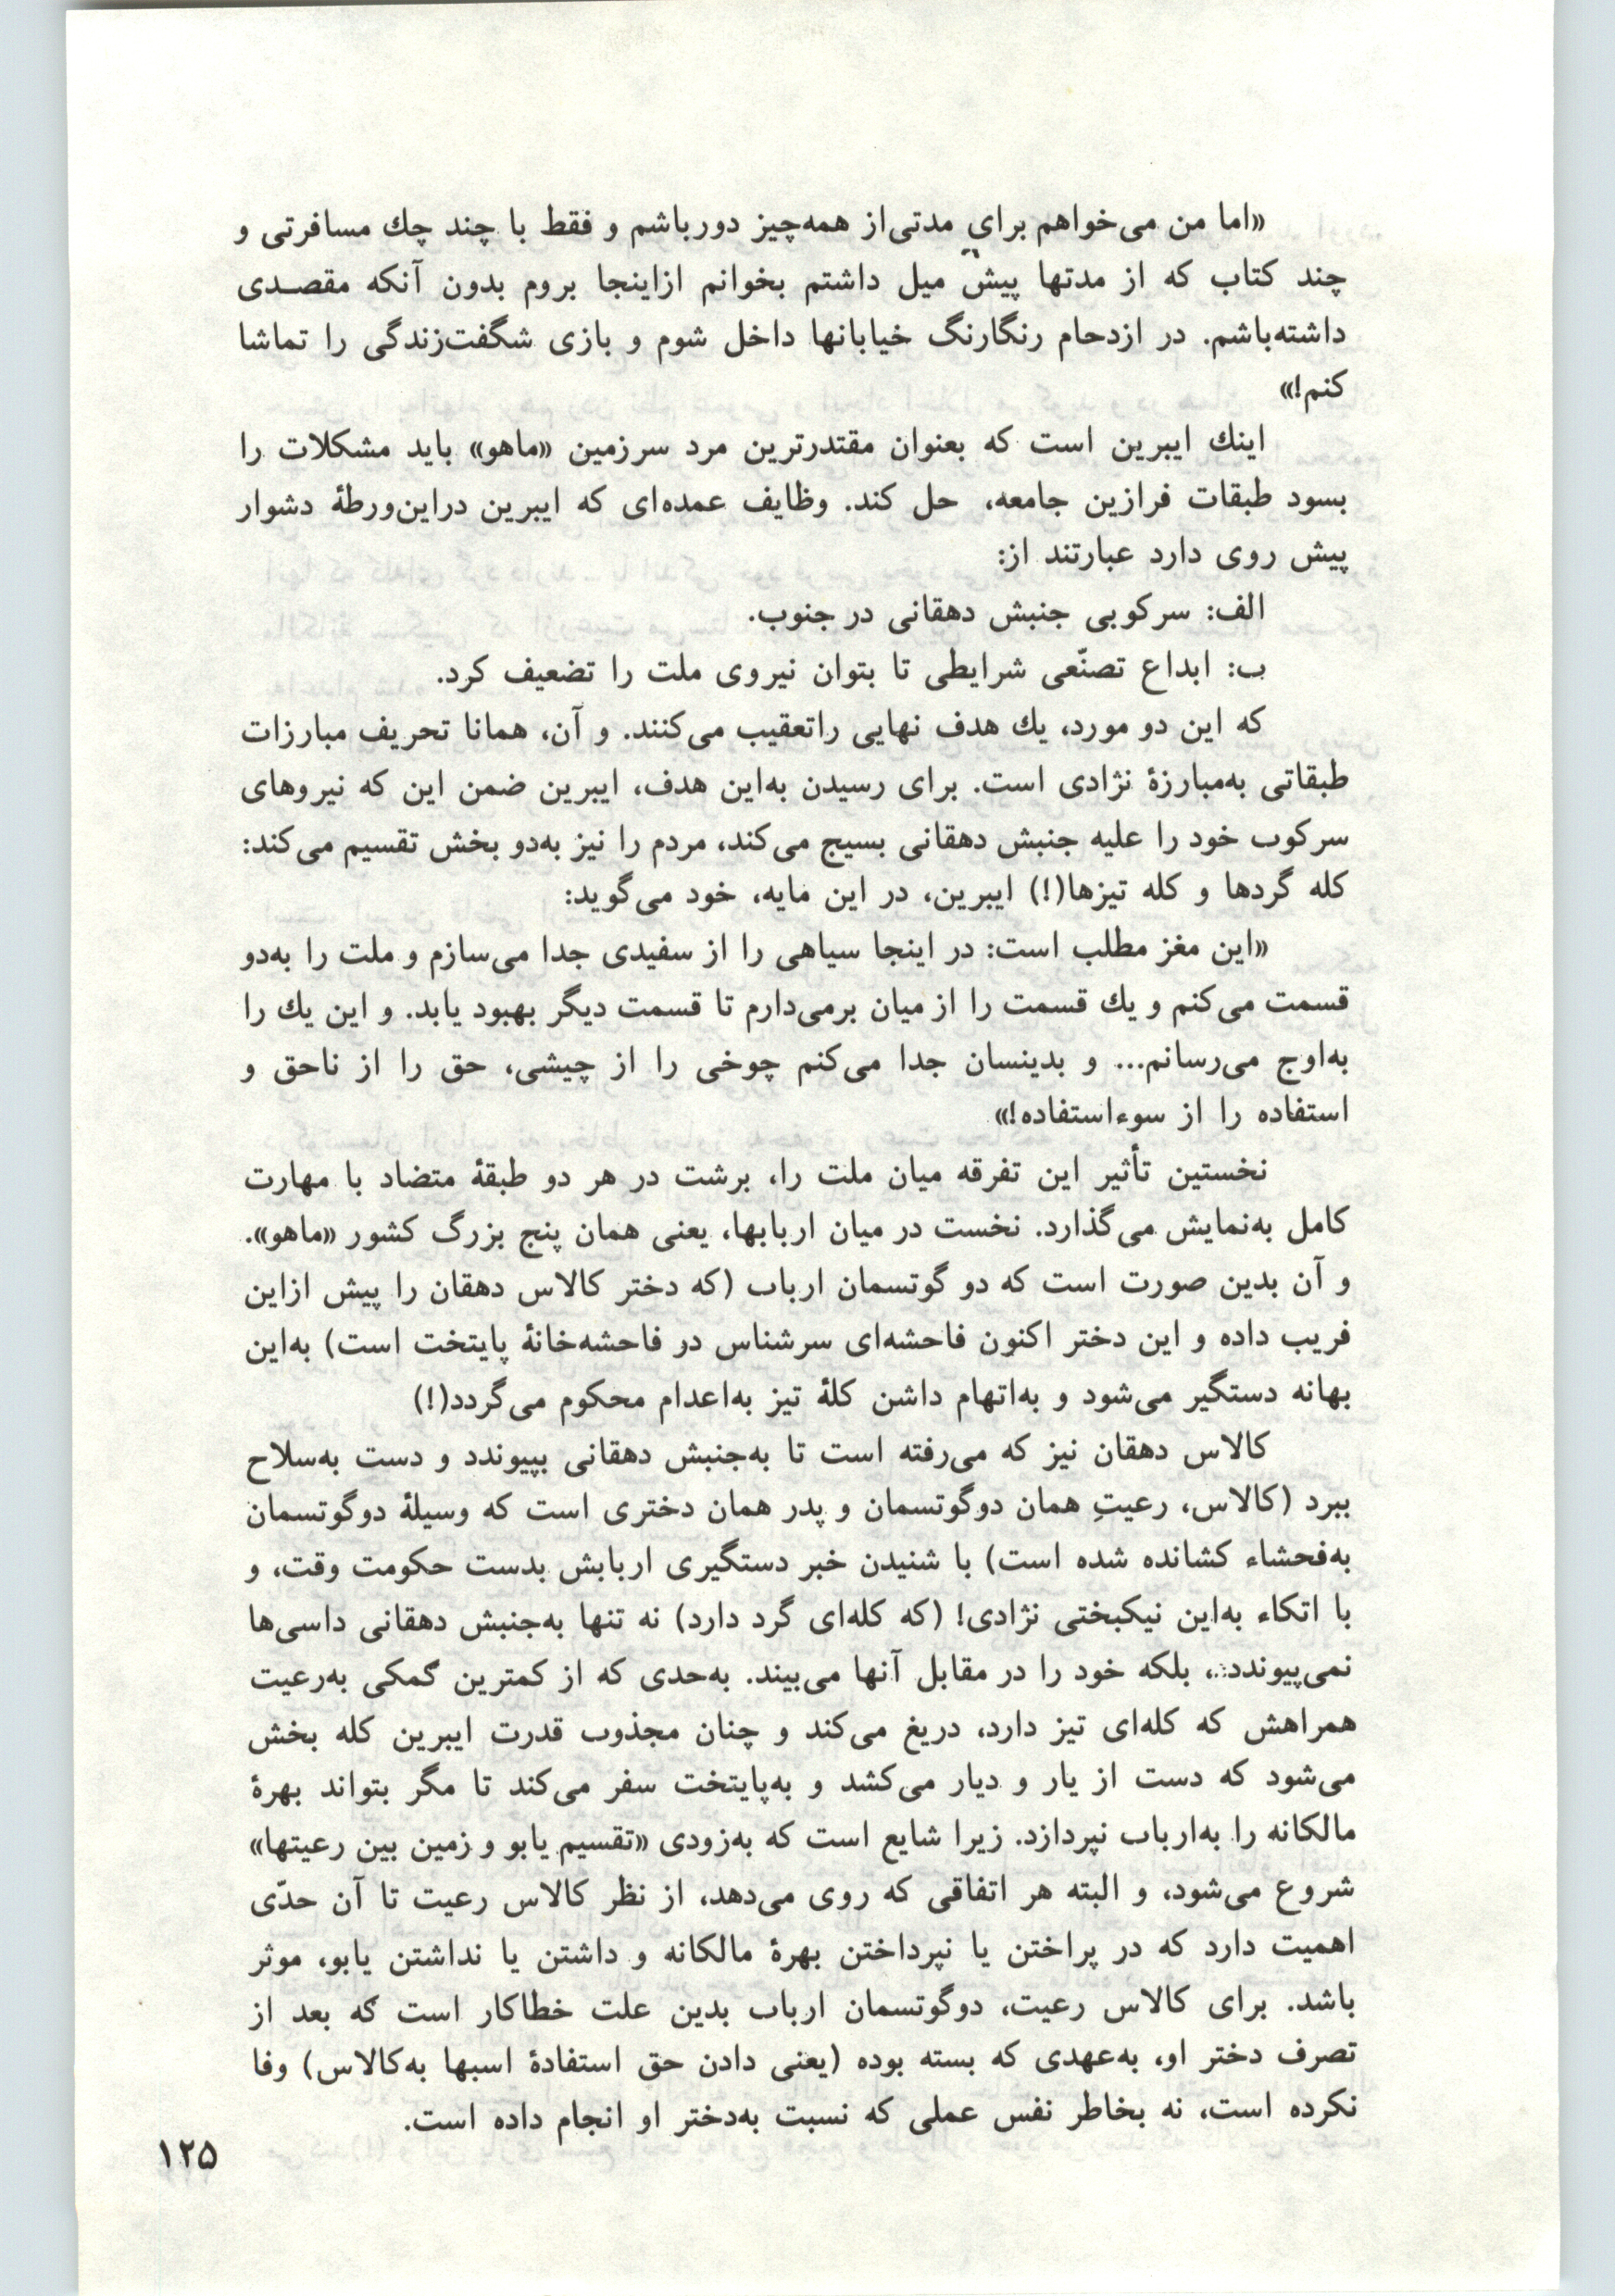 «اما من می‌خواهم برای مدتی‌از همه‌چیز دورباشم و فقط با چند چك مسافرتی و
چند کتاب که از مدتها پیش میل داشتم بخوانم ازاینجا بروم بدون آنکه مقصدی
داشته‌باشم. در ازدحام رنگارنگ خیابانها داخل شوم و بازی شگفت‌زندگی را تماشا
کنم!»
اینك ایبرین است که بعنوان مقتدرترین مرد سرزمین «ماهو» باید مشکلات را
بسود طبقات فرازین جامعه، حل کند. وظایف عمده‌ای که ایبرین دراین‌ورطهٔ دشوار
پیش روی دارد عبارتند از:
الف: سرکوبی جنبش دهقانی در جنوب.
ب: ابداع تصنّعی شرایطی تا بتوان نیروی ملت را تضعیف کرد.
که این دو مورد، یك هدف نهایی راتعقیب می‌کنند. و آن، همانا تحریف مبارزات
طبقاتی به‌مبارزهٔ نژادی است. برای رسیدن به‌این هدف، ایبرین ضمن این که نیروهای
سرکوب خود را علیه جنبش دهقانی بسیج می‌کند، مردم را نیز به‌دو بخش تقسیم می‌کند:
کله گردها و کله تیزها(!) ایبرین، در این مایه، خود می‌گوید:
«این مغز مطلب است: در اینجا سیاهی را از سفیدی جدا می‌سازم و ملت را به‌دو
قسمت می‌کنم و یك قسمت را از میان برمی‌دارم تا قسمت دیگر بهبود یابد. و این یك را
به‌اوج می‌رسانم... و بدینسان جدا می‌کنم چوخی را از چیشی، حق را از ناحق و
استفاده را از سوءاستفاده!»
نخستین تأثیر این تفرقه میان ملت را، برشت در هر دو طبقهٔ متضاد با مهارت
کامل به‌نمایش می‌گذارد. نخست در میان اربابها، یعنی همان پنج بزرگ کشور «ماهو».
و آن بدین صورت است که دو گوتسمان ارباب (که دختر کالاس دهقان را پیش ازاین
فریب داده و این دختر اکنون فاحشه‌ای سرشناس در فاحشه‌خانهٔ پایتخت است) به‌این
بهانه دستگیر می‌شود و به‌اتهام داشن کلهٔ تیز به‌اعدام محکوم می‌گردد(!)
کالاس دهقان نیز که می‌رفته است تا به‌جنبش دهقانی بپیوندد و دست به‌سلاح
ببرد (کالاس، رعیتِ همان دوگوتسمان و پدر همان دختری است که وسیلهٔ دوگوتسمان
به‌فحشاء کشانده شده است) با شنیدن خبر دستگیری اربابش بدست حکومت وقت، و
با اتکاء به‌این نیکبختی نژادی! (که کله‌ای گرد دارد) نه تنها به‌جنبش دهقانی داسی‌ها
نمی‌پیوندد، بلکه خود را در مقابل آنها می‌بیند. به‌حدی که از کمترین کمکی به‌رعیت
همراهش که کله‌ای تیز دارد، دریغ می‌کند و چنان مجذوب قدرت ایبرین کله بخش
می‌شود که دست از یار و دیار می‌کشد و به‌پایتخت سفر می‌کند تا مگر بتواند بهرهٔ
مالکانه را به‌ارباب نپردازد. زیرا شایع است که به‌زودی «تقسیم یابو و زمین بین رعیتها»
شروع می‌شود، و البته هر اتفاقی که روی می‌دهد، از نظر کالاس رعیت تا آن حدّی
اهمیت دارد که در پراختن یا نپرداختن بهرهٔ مالکانه و داشتن یا نداشتن یابو، موثر
باشد. برای کالاس رعیت، دوگوتسمان ارباب بدین علت خطاکار است که بعد از
تصرف دختر او، به‌عهدی که بسته بوده (یعنی دادن حق استفادهٔ اسبها به‌کالاس) وفا
نکرده است، نه بخاطر نفس عملی که نسبت به‌دختر او انجام داده است.
۱۲۵